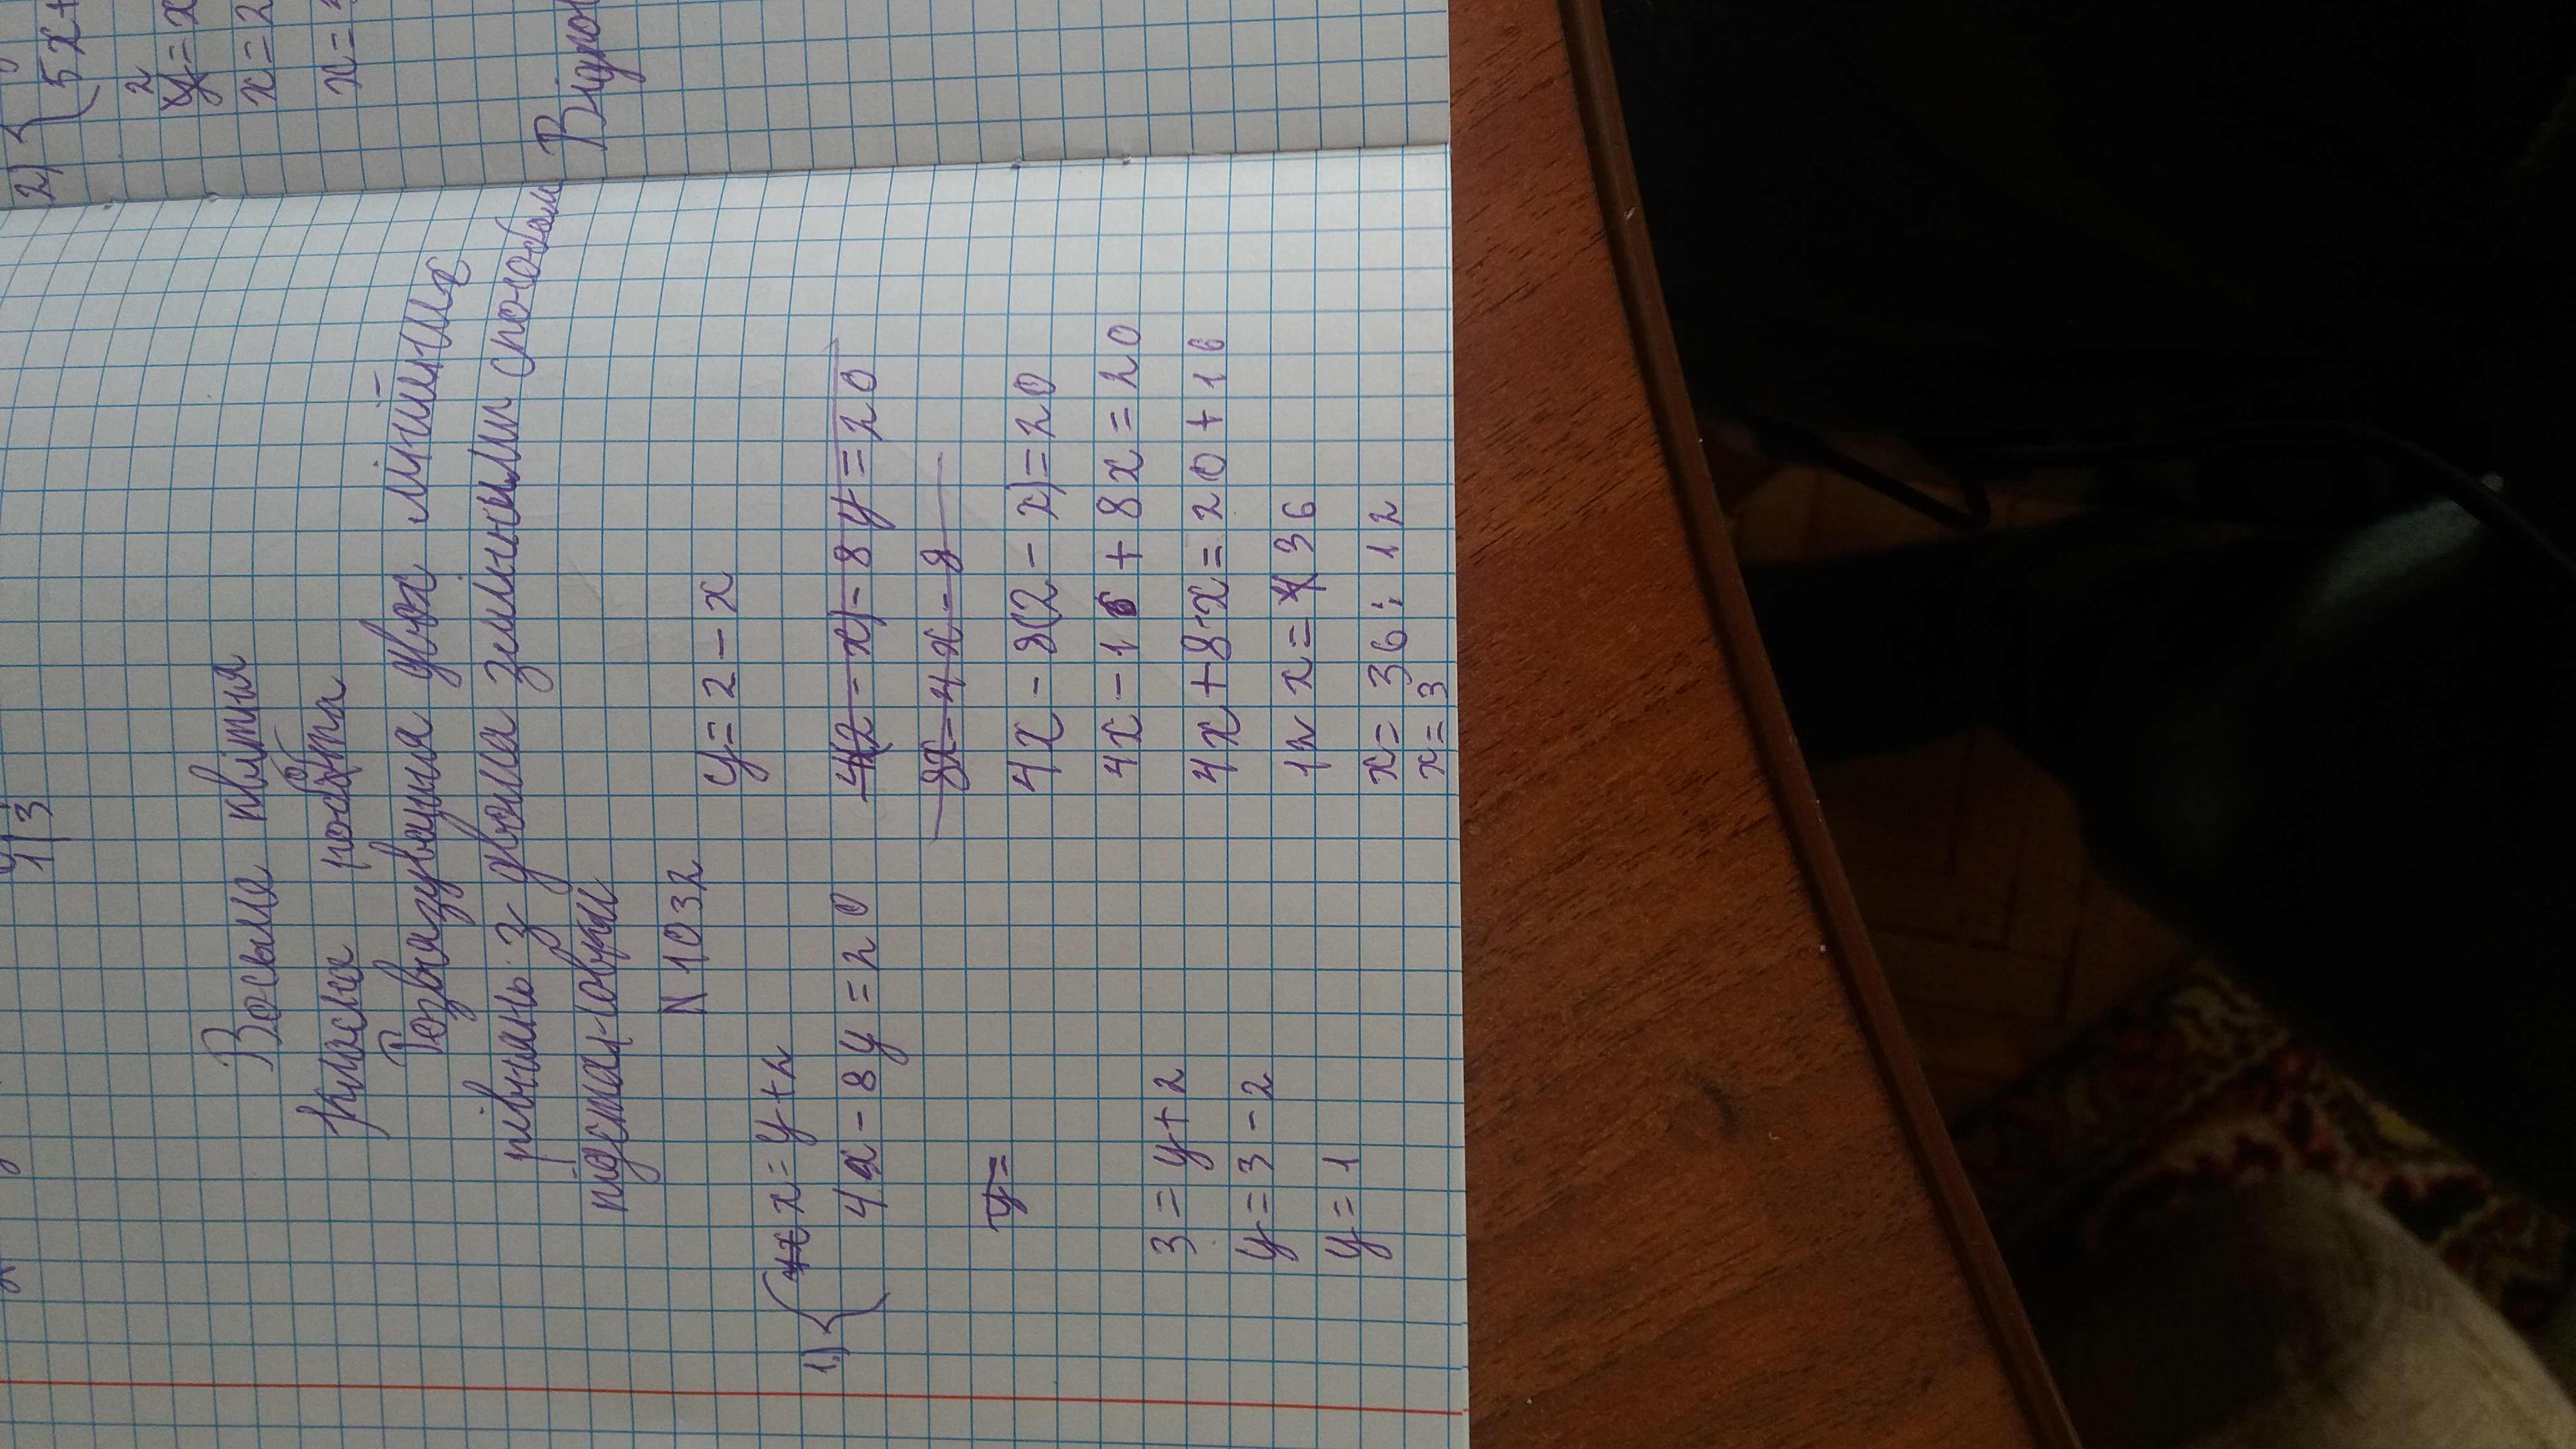 1|3
Восьме квітня
Класна робота
Розв'язування двох лінійних
рівнянь з двома змінними способом
підстановки
N 1032
1) { x = y + 2
4x - 8y = 20
y =
3 = y + 2
y = 3 - 2
y = 1
y = 2 - x
4(2 - x) - 8y = 20
8x - 4x - 8
4x - 8(2 - x) = 20
4x - 16 + 8x = 20
4x + 8x = 20 + 16
12x = 36
x = 36 : 12
x = 3
2) { 5x +
2
y = x
x = 2
x =